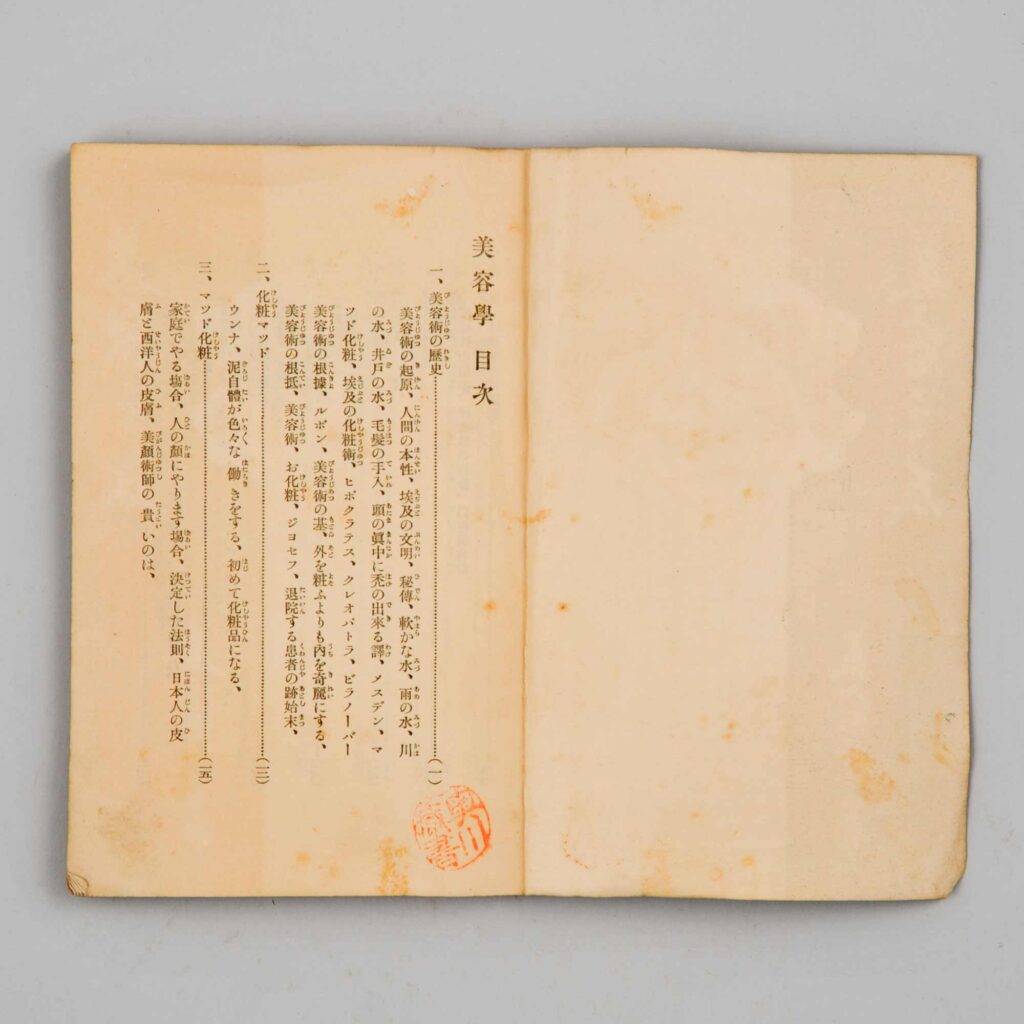 美容學 目次
一、美容術の歷史………(一)
美容術の起原、人間の本性、埃及の文明、秘傳、軟かな水、雨の水、川
の水、井戸の水、毛髮の手入、頭の眞中に禿の出來る譯、メスデン、マ
ツド化粧、埃及の化粧術、ヒポクラテス、クレオパトラ、ビラノーバー
美容術の根據、ルボン、美容術の基、外を粧ふよりも內を奇麗にする、
美容術の根抵、美容術、お化粧、ジヨセフ、退院する患者の跡始末、
二、化粧マツド………(一三)
ウンナ、泥自體が色々な働きをする、初めて化粧品になる、
三、マツド化粧………(一五)
家庭でやる塲合、人の顏にやります塲合、決定した法則、日本人の皮
膚と西洋人の皮膚、美顏術師の貴いのは、